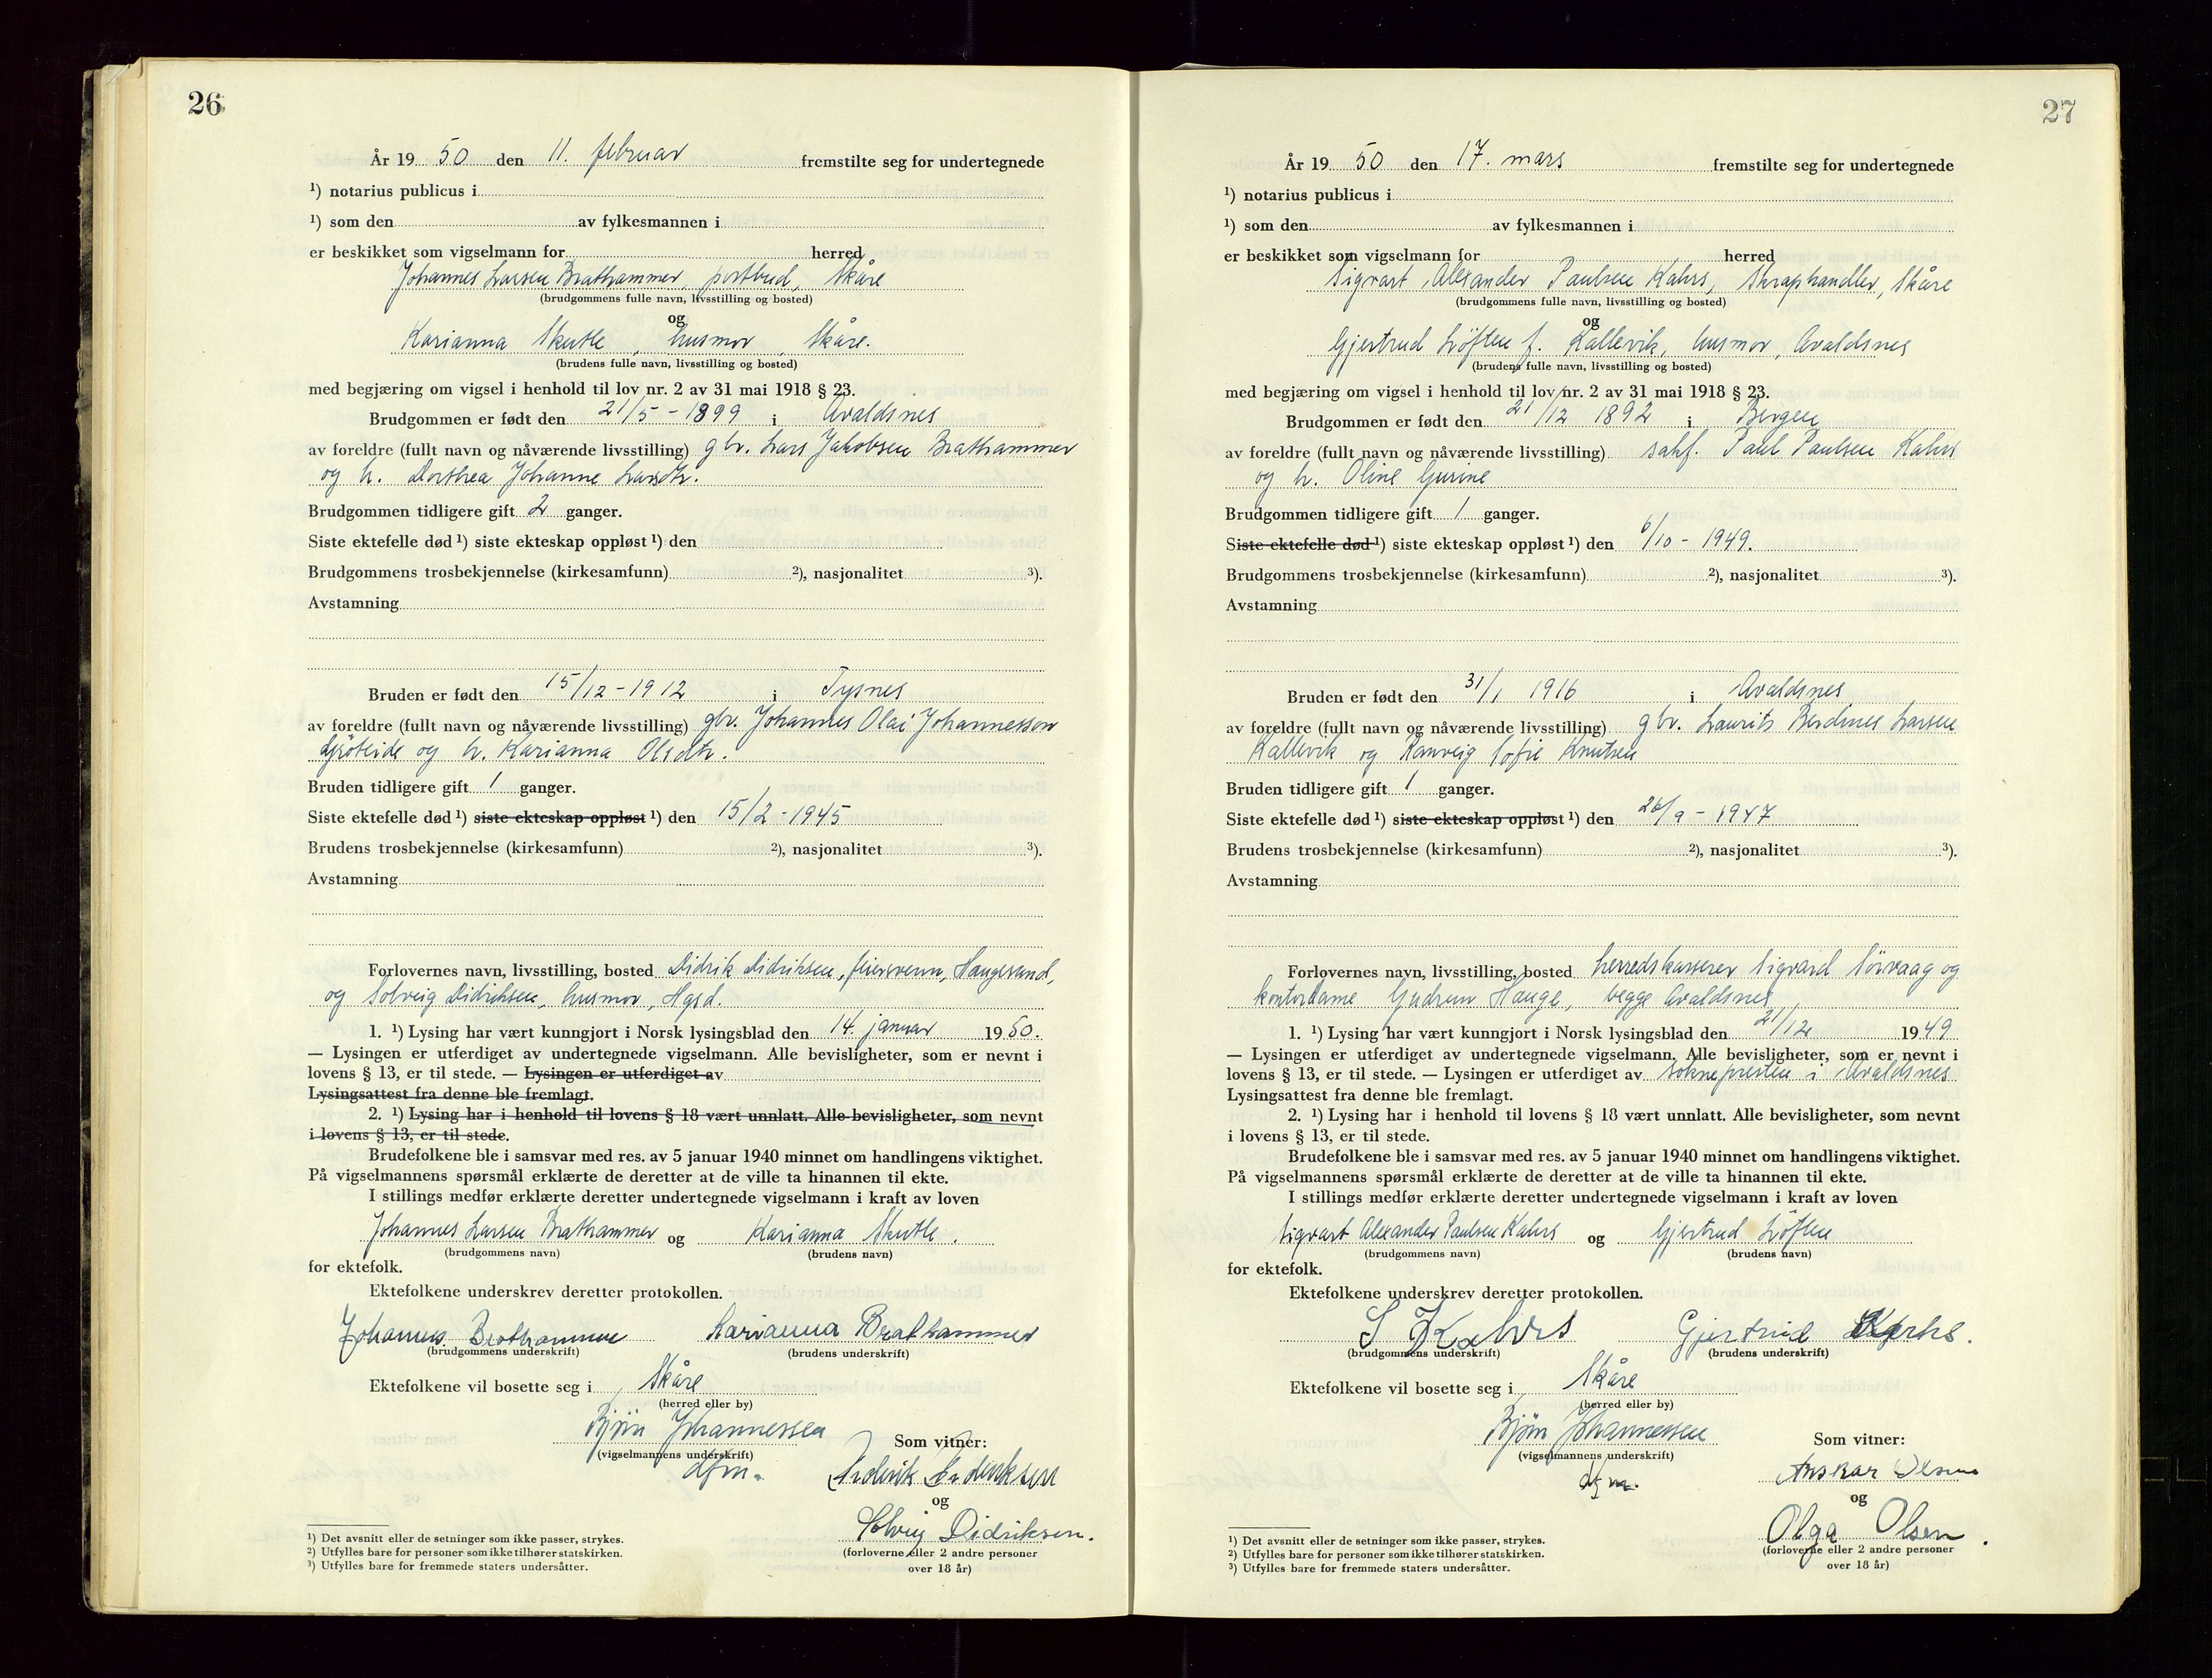 26
År 19 50 den 11. februar fremstilte seg for undertegnede
¹) notarius publicus i
¹) som den av fylkesmannen i
er beskikket som vigselmann for herred
Johannes Larsen Brathammer, postbud, Skåre
(brudgommens fulle navn, livsstilling og bosted)
og
Karianna Skutle, husmor, Skåre.
(brudens fulle navn, livsstilling og bosted)
med begjæring om vigsel i henhold til lov nr. 2 av 31 mai 1918 § 23.
Brudgommen er født den 21/5 - 1899 i Avaldsnes
av foreldre (fullt navn og nåværende livsstilling) gbr. Lars Jakobsen Brathammer
og h. Dorthea Johanne Larsdtr.
Brudgommen tidligere gift 2 ganger.
Siste ektefelle død ¹) siste ekteskap oppløst ¹) den
Brudgommens trosbekjennelse (kirkesamfunn) ²), nasjonalitet ³).
Avstamning
Bruden er født den 15/12 - 1912 i Tysnes
av foreldre (fullt navn og nåværende livsstilling) gbr. Johannes Olai Johannesson
og h. Karianna Olsdtr.
Bruden tidligere gift 1 ganger.
Siste ektefelle død ¹) siste ekteskap oppløst ¹) den 15/2 - 1945
Brudens trosbekjennelse (kirkesamfunn) ²), nasjonalitet ³).
Avstamning
Forlovernes navn, livsstilling, bosted Didrik Didriksen, feiersvenn, Haugesund,
og Solveig Didriksen, husmor, Hgsd.
1. ¹) Lysing har vært kunngjort i Norsk lysingsblad den 14. januar 1950.
— Lysingen er utferdiget av undertegnede vigselmann. Alle bevisligheter, som er nevnt i
lovens § 13, er til stede. — Lysingen er utferdiget av
Lysingsattest fra denne ble fremlagt.
2. ¹) Lysing har i henhold til lovens § 18 vært unnlatt. Alle bevisligheter, som nevnt
i lovens § 13, er til stede.
Brudefolkene ble i samsvar med res. av 5 januar 1940 minnet om handlingens viktighet.
På vigselmannens spørsmål erklærte de deretter at de ville ta hinannen til ekte.
I stillings medfør erklærte deretter undertegnede vigselmann i kraft av loven
Johannes Larsen Brathammer og Karianna Skutle.
(brudgommens navn) (brudens navn)
for ektefolk.
Ektefolkene underskrev deretter protokollen.
Johannes Brathammer Karianna Brathammer
(brudgommens underskrift) (brudens underskrift)
Ektefolkene vil bosette seg i Skåre
(herred eller by)
Bjørn Johannessen
(vigselmannens underskrift)
dfm.
Som vitner:
Didrik Didriksen
og
Solveig Didriksen.
(forloverne eller 2 andre personer
over 18 år)
¹) Det avsnitt eller de setninger som ikke passer, strykes.
²) Utfylles bare for personer som ikke tilhører statskirken.
³) Utfylles bare for fremmede staters undersåtter.
27
År 19 50 den 17. mars fremstilte seg for undertegnede
¹) notarius publicus i
¹) som den av fylkesmannen i
er beskikket som vigselmann for herred
Sigvart Alexander Paulsen Kahrs, Skraphandler, Skåre
(brudgommens fulle navn, livsstilling og bosted)
og
Gjertrud Löften f. Kallevik, husmor, Avaldsnes
(brudens fulle navn, livsstilling og bosted)
med begjæring om vigsel i henhold til lov nr. 2 av 31 mai 1918 § 23.
Brudgommen er født den 21/12 1892 i Bergen
av foreldre (fullt navn og nåværende livsstilling) sakf. Paul Paulsen Kahrs
og h. Oline Gurine
Brudgommen tidligere gift 1 ganger.
Siste ektefelle død ¹) siste ekteskap oppløst ¹) den 6/10 - 1949.
Brudgommens trosbekjennelse (kirkesamfunn) ²), nasjonalitet ³).
Avstamning
Bruden er født den 31/1 1916 i Avaldsnes
av foreldre (fullt navn og nåværende livsstilling) gbr. Laurits Berdines Larsen
Kallevik og Ranveig Sofie Knutsen
Bruden tidligere gift 1 ganger.
Siste ektefelle død ¹) siste ekteskap oppløst ¹) den 26/9 - 1947
Brudens trosbekjennelse (kirkesamfunn) ²), nasjonalitet ³).
Avstamning
Forlovernes navn, livsstilling, bosted herredskasserer Sigvard Sörvaag og
kontordame Gudrun Hauge, begge Avaldsnes,
1. ¹) Lysing har vært kunngjort i Norsk lysingsblad den 21/12 1949
— Lysingen er utferdiget av undertegnede vigselmann. Alle bevisligheter, som er nevnt i
lovens § 13, er til stede. — Lysingen er utferdiget av soknepresten i Avaldsnes
Lysingsattest fra denne ble fremlagt.
2. ¹) Lysing har i henhold til lovens § 18 vært unnlatt. Alle bevisligheter, som nevnt
i lovens § 13, er til stede.
Brudefolkene ble i samsvar med res. av 5 januar 1940 minnet om handlingens viktighet.
På vigselmannens spørsmål erklærte de deretter at de ville ta hinannen til ekte.
I stillings medfør erklærte deretter undertegnede vigselmann i kraft av loven
Sigvart Alexander Paulsen Kahrs og Gjertrud Löften
(brudgommens navn) (brudens navn)
for ektefolk.
Ektefolkene underskrev deretter protokollen.
S Kahrs Gjertrud
(brudgommens underskrift) (brudens underskrift)
Ektefolkene vil bosette seg i Skåre
(herred eller by)
Bjørn Johannessen
(vigselmannens underskrift)
dfm.
Som vitner:
Anskar Olsen
og
Olga Olsen.
(forloverne eller 2 andre personer
over 18 år)
¹) Det avsnitt eller de setninger som ikke passer, strykes.
²) Utfylles bare for personer som ikke tilhører statskirken.
³) Utfylles bare for fremmede staters undersåtter.